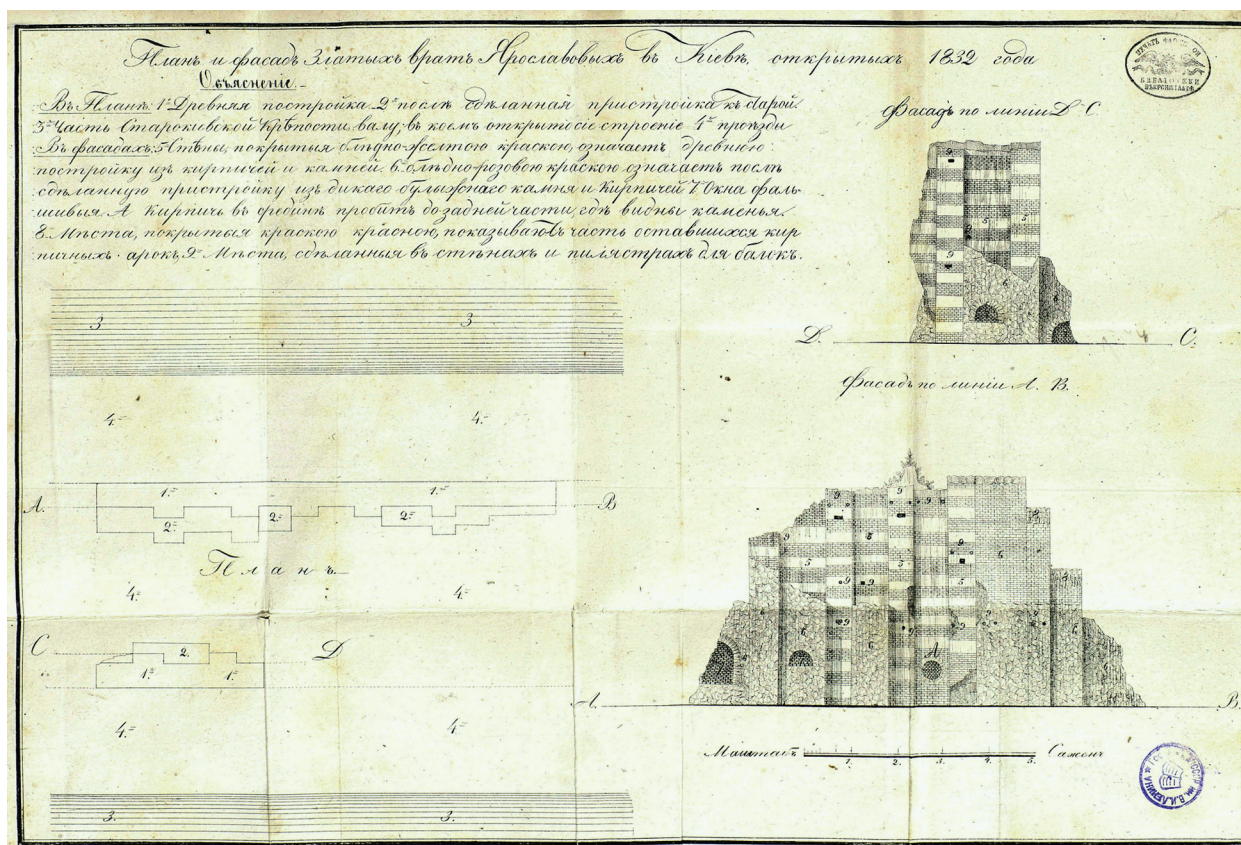 Планъ и фасадъ Златыхъ вратъ Ярославовыхъ въ Кіевѣ, открытыхъ 1832 года
Объясненіе.
Въ Планѣ: 1. Древняя постройка 2. послѣ сдѣланная пристройка къ старой
3. Часть Старокіевской Крѣпости валу, въ коемъ открыто сіе строеніе 4. проѣзды
Въ фасадахъ: 5. Стѣны, покрытыя блѣдно-желтою краскою, означаетъ древнюю
постройку изъ кирпичей и камней. 6. блѣдно-розовою краскою означаетъ послѣ
сдѣланную пристройку изъ дикаго булыжнаго камня и Кирпичей 7. Окна фаль-
шивыя. А Кирпичъ въ срединѣ пробитъ до задней части, гдѣ видны каменья.
8. Мѣста, покрытыя краскою красною, показываютъ часть оставшихся кир-
пичныхъ арокъ, 9. Мѣста, сдѣланныя въ стѣнахъ и пилястрахъ для балокъ.
БИБЛІОТЕКИ
Фасадъ по линіи D C.
D. C.
Фасадъ по линіи А. В.
3 3
4. 4.
А. 1. 1. В
2. 2. 2.
Планъ
4. 4.
С 2. D
1. 1.
4. 4.
3. 3.
9
5 5
9
6 6
9 9 9
5 6
9 5 9 9 6
9 9
6 6 6 6
А
А. В.
Маштабъ 1. 2. 3. 4. 5. Сажень
ИМ. В.И.ЛЕНИНА